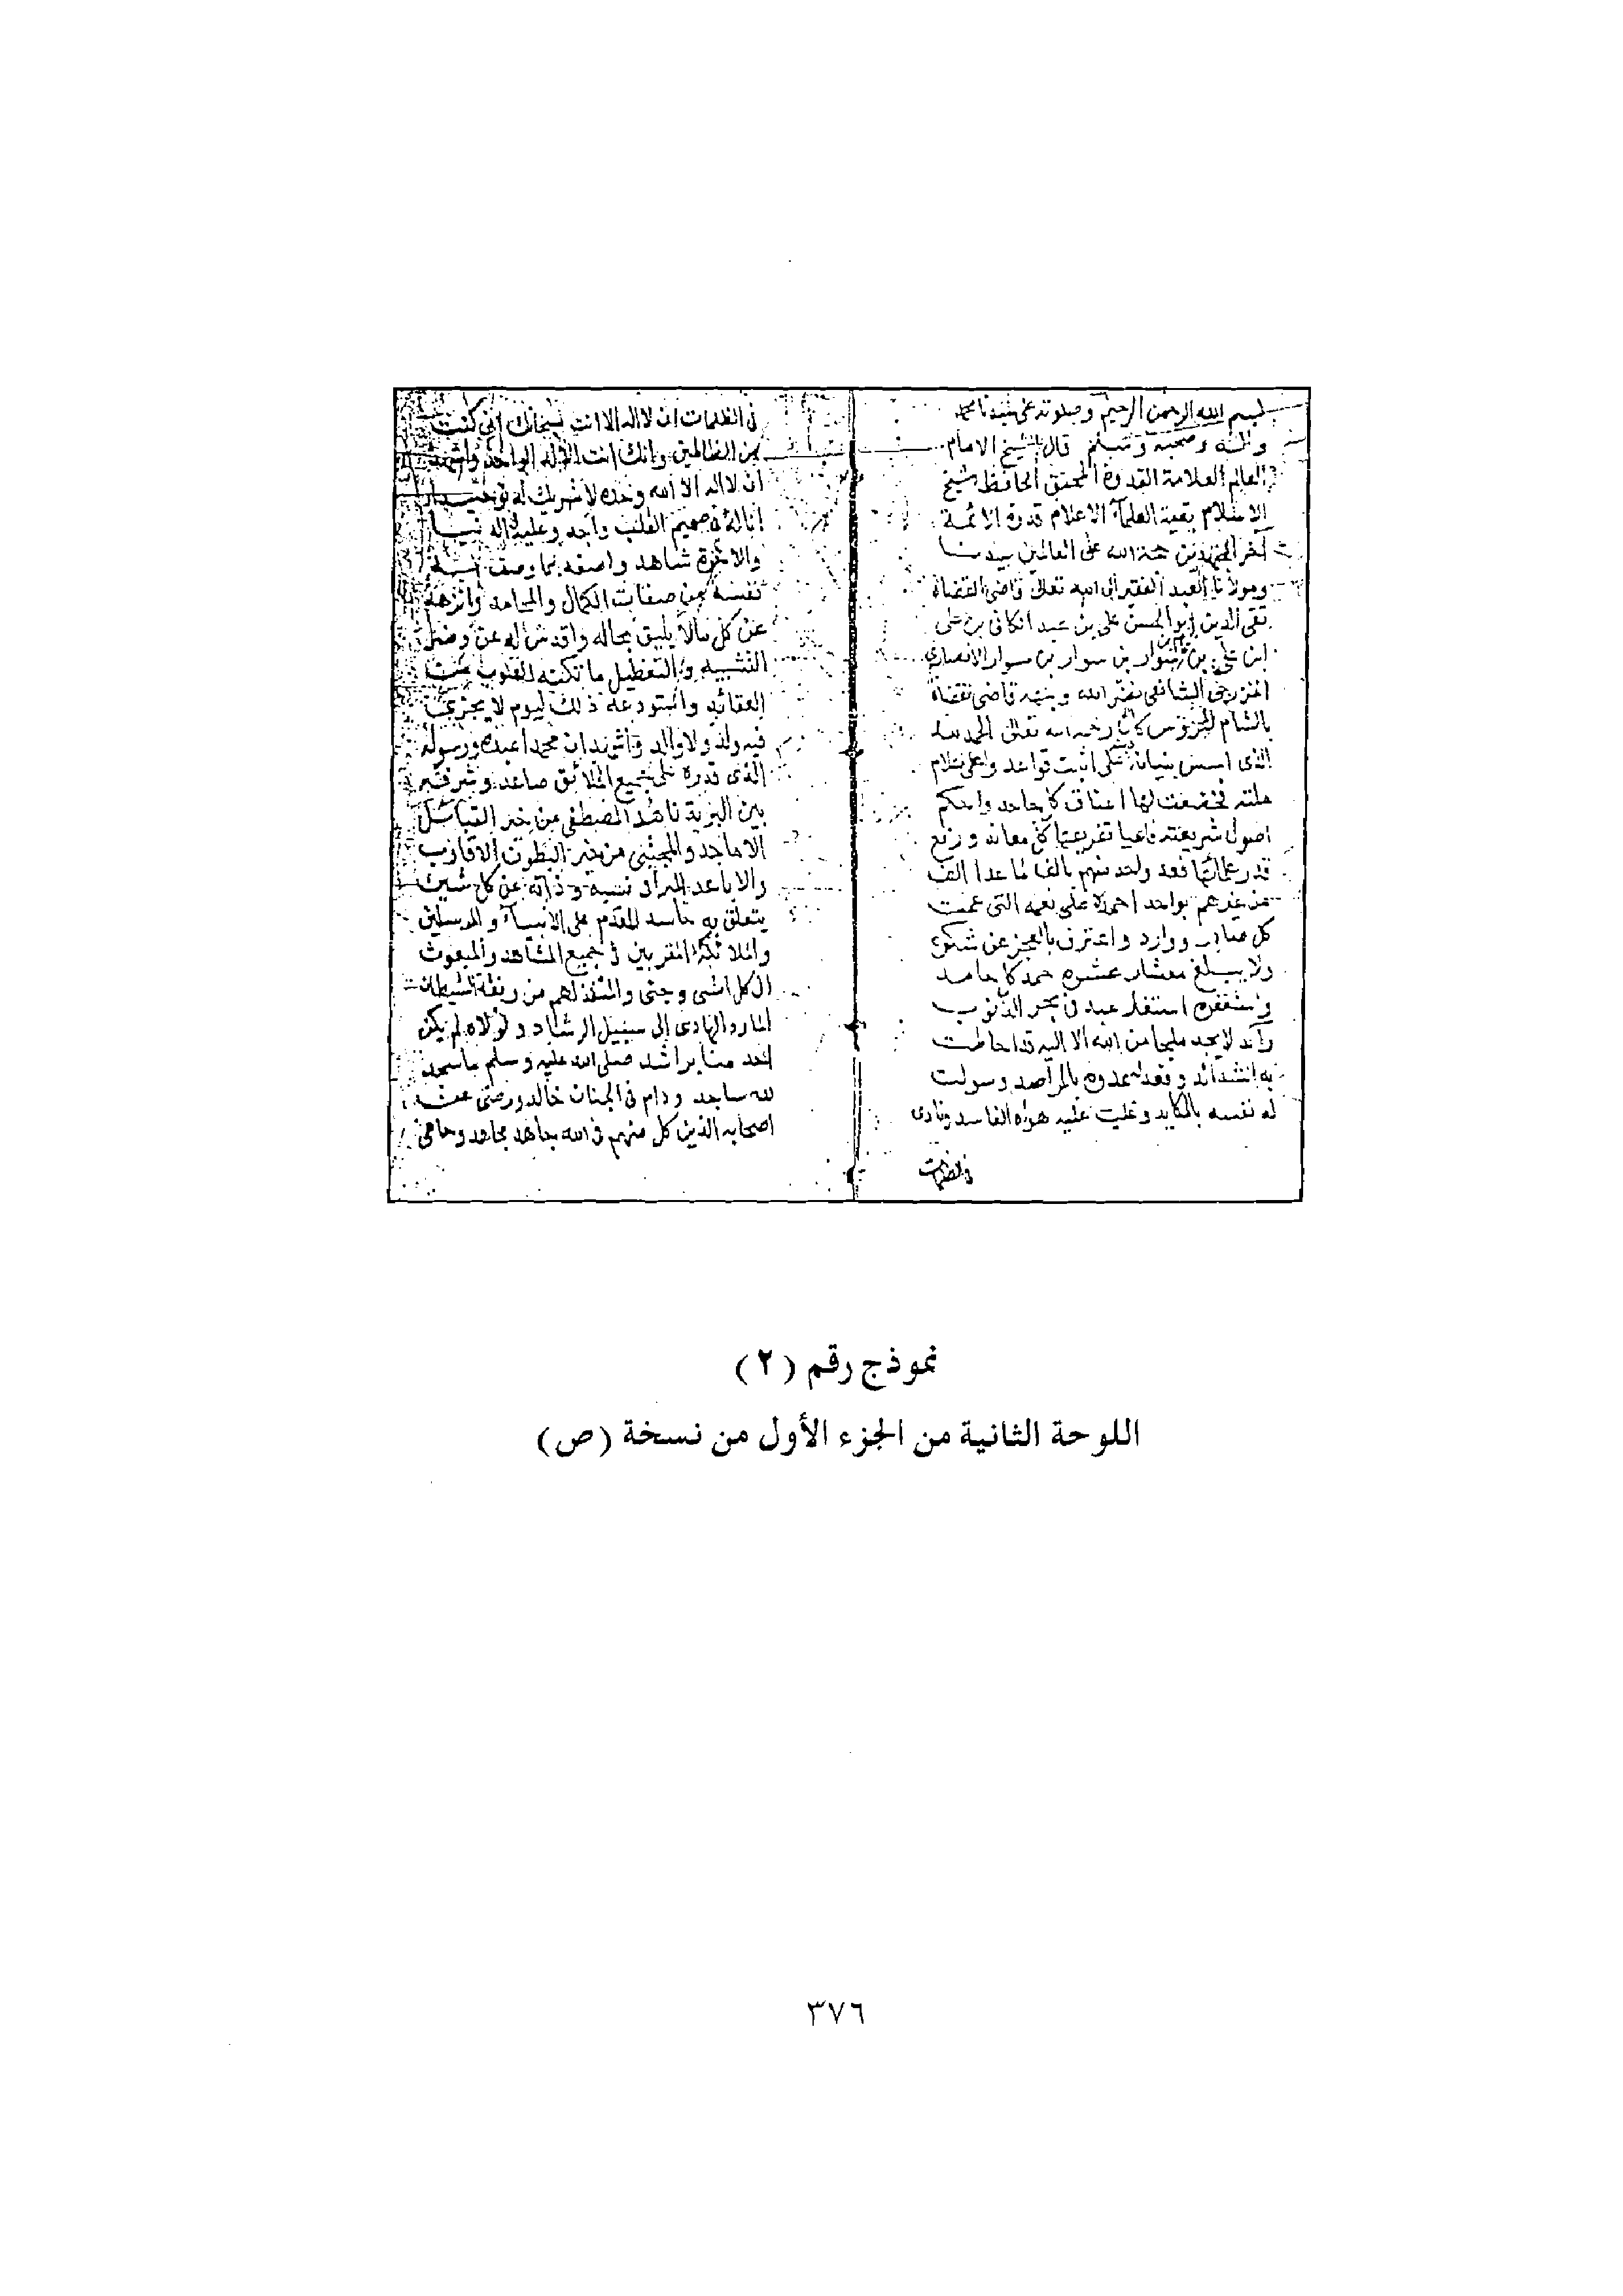 بسم الله الرحمن الرحيم وصلوته على سيدنا محمد
وآله وصحبه وسلم قال الشيخ الامام
العالم العلامة القدوة المحقق الحافظ شيخ
الاسلام بقية العلمآ الاعلام قدوة الائمة
آخر المجتهدين حجة الله على العالمين سيدنا
ومولانا العبد الفقير الى الله تعالى قاضى القضاة
تقى الدين ابو الحسن على بن عبد الكافى بن على
ابن على بن سوار بن سوار الانصارى
الخزرجى الشافعى قاضى قضاة
بالشام المحروس كان رحمه الله تعالى الحمد لله
الذى اسس بنيانه على اثبت قواعد واعلى اعلام
ملته فخضعت لها اعناق كل جاحد واحكم
اصول شريعته فاعيا تفريعها كل معاند ورفع
قدر علمائها فعد واحد منهم بالف لما عدا الف
من غيرهم بواحد احمده على نعمه التى عمت
كل صادر ووارد واعترف بالعجز عن شكره
ولا يبلغ معشار عشره حمد كل حامد
واستغفره استغفار عبد فى بحر الذنوب
راكد لا يجد ملجا من الله الا اليه قد احاطت
به الشدائد وقعد له عدوه بالمراصد وسولت
له نفسه بالمكايد وغلب عليه هواه الفاسد ونادى
فى الظلمات
فى الظلمات ان لا اله الا انت سبحانك انى كنت
من الظالمين وانك انت الاله الواحد واشهد
ان لا اله الا الله وحده لا شريك له
فى صميم القلب واجد
والاخرة شاهد واصفه بما وصف به
نفسه من صفات الكمال والمحامد وانزهه
عن كل مالا يليق بجاله واقدس له عن
التشبيه والتعطيل ما تكنه القلوب من
العقائد واستودعه ذلك ليوم لا يجزى
فيه ولد ولا والد واشهد ان محمدا عبده ورسوله
الذى قدره على جميع الخلائق صاعد وشرفه
بين البرية ناهد المصطفى من خير القبائل
الاماجد والمجتبى من خير البطون الاقارب
والاباعد المبرا فى نسبه وذاته عن كل شين
يتعلق به حاسد المقدم على الانبيآ والمرسلين
والملائكة المقربين فى جميع المشاهد والمبعوث
الى كل انسى وجنى والمنقذ لهم من ربقة الشيطان
المارد الهادى الى سبيل الرشاد ولولاه لم يكن
احد منا براشد صلى الله عليه وسلم ما سجد
لله ساجد ودام فى الجنان خالد ورضى عن
اصحابه الذين كل منهم فى الله جاهد مجاهد وحامى
نموذج رقم (٢)
اللوحة الثانية من الجزء الأول من نسخة (ص)
٣٧٦